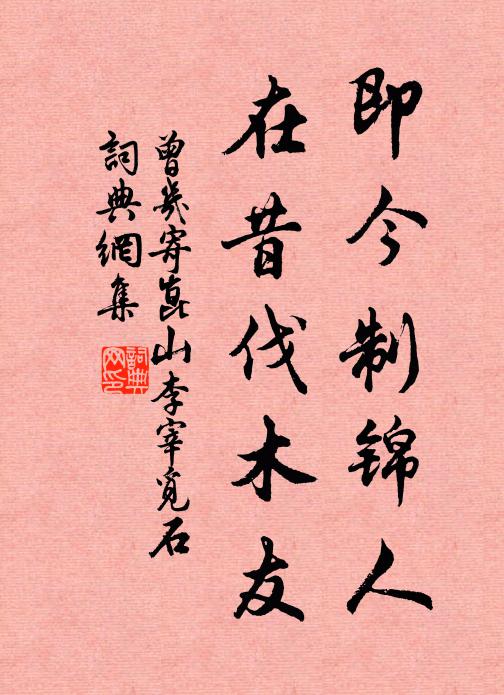 即今制锦人
在昔伐木友
曾幾寄崑山李宰覓石
詞典網集
詞典網印